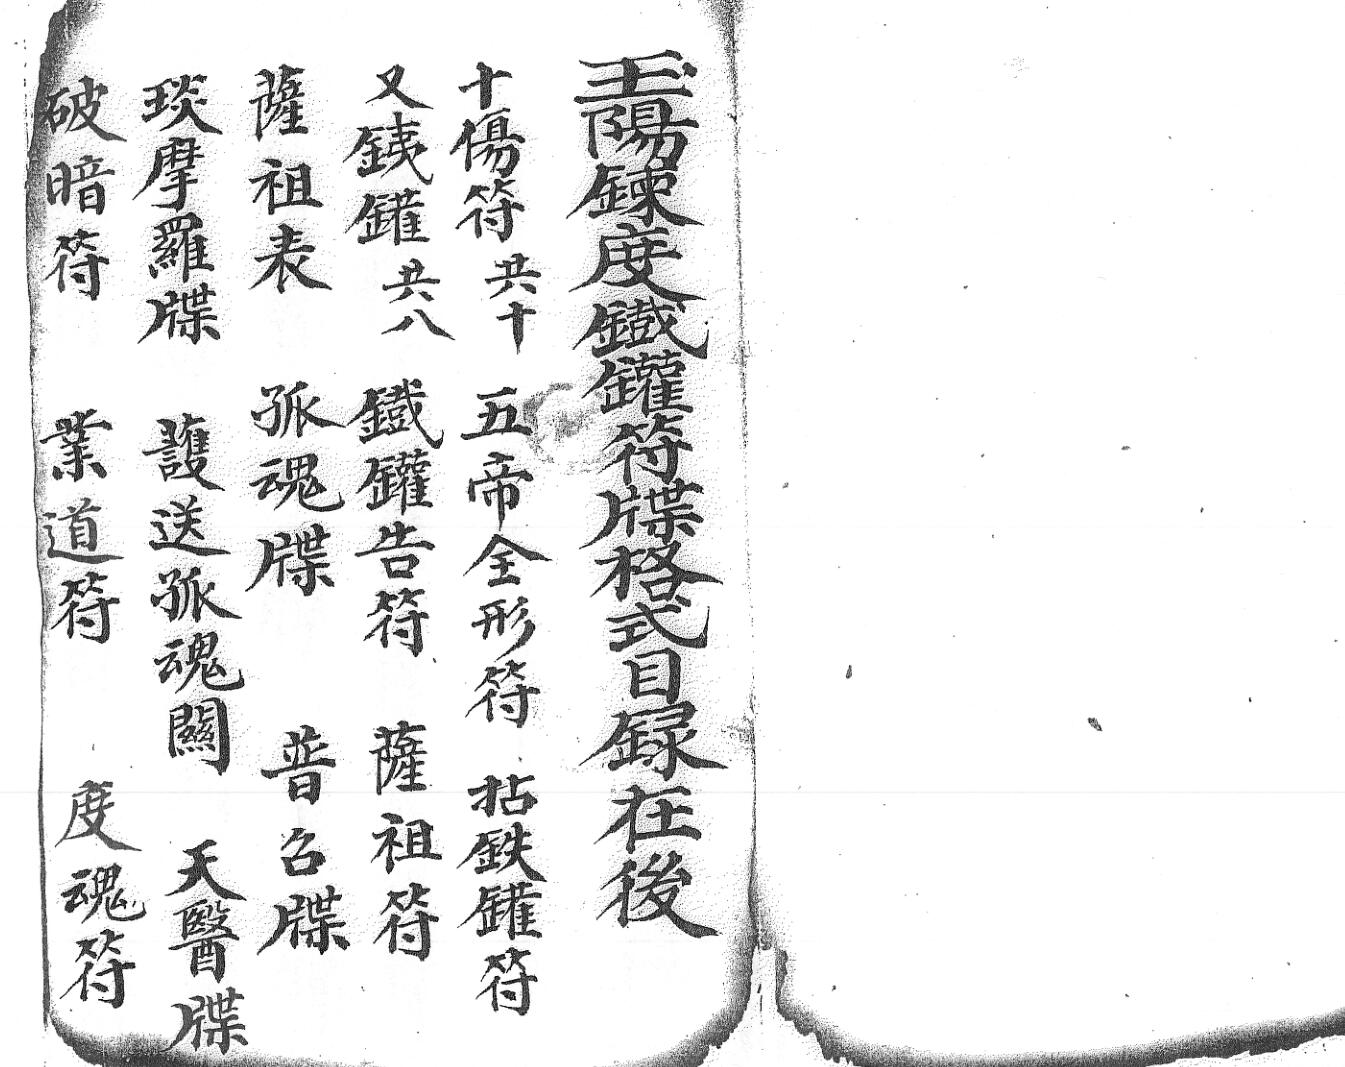 玉陽鍊度鐵鑵符牒格式目録在後
十傷符 共十 五帝全形符 拈鉄鑵符
又銕鑵 共八 鐵鑵告符 薩祖符
薩祖表 孤魂牒 普召牒
琰摩羅牒 護送孤魂關 天醫牒
破暗符 業道符 度魂符